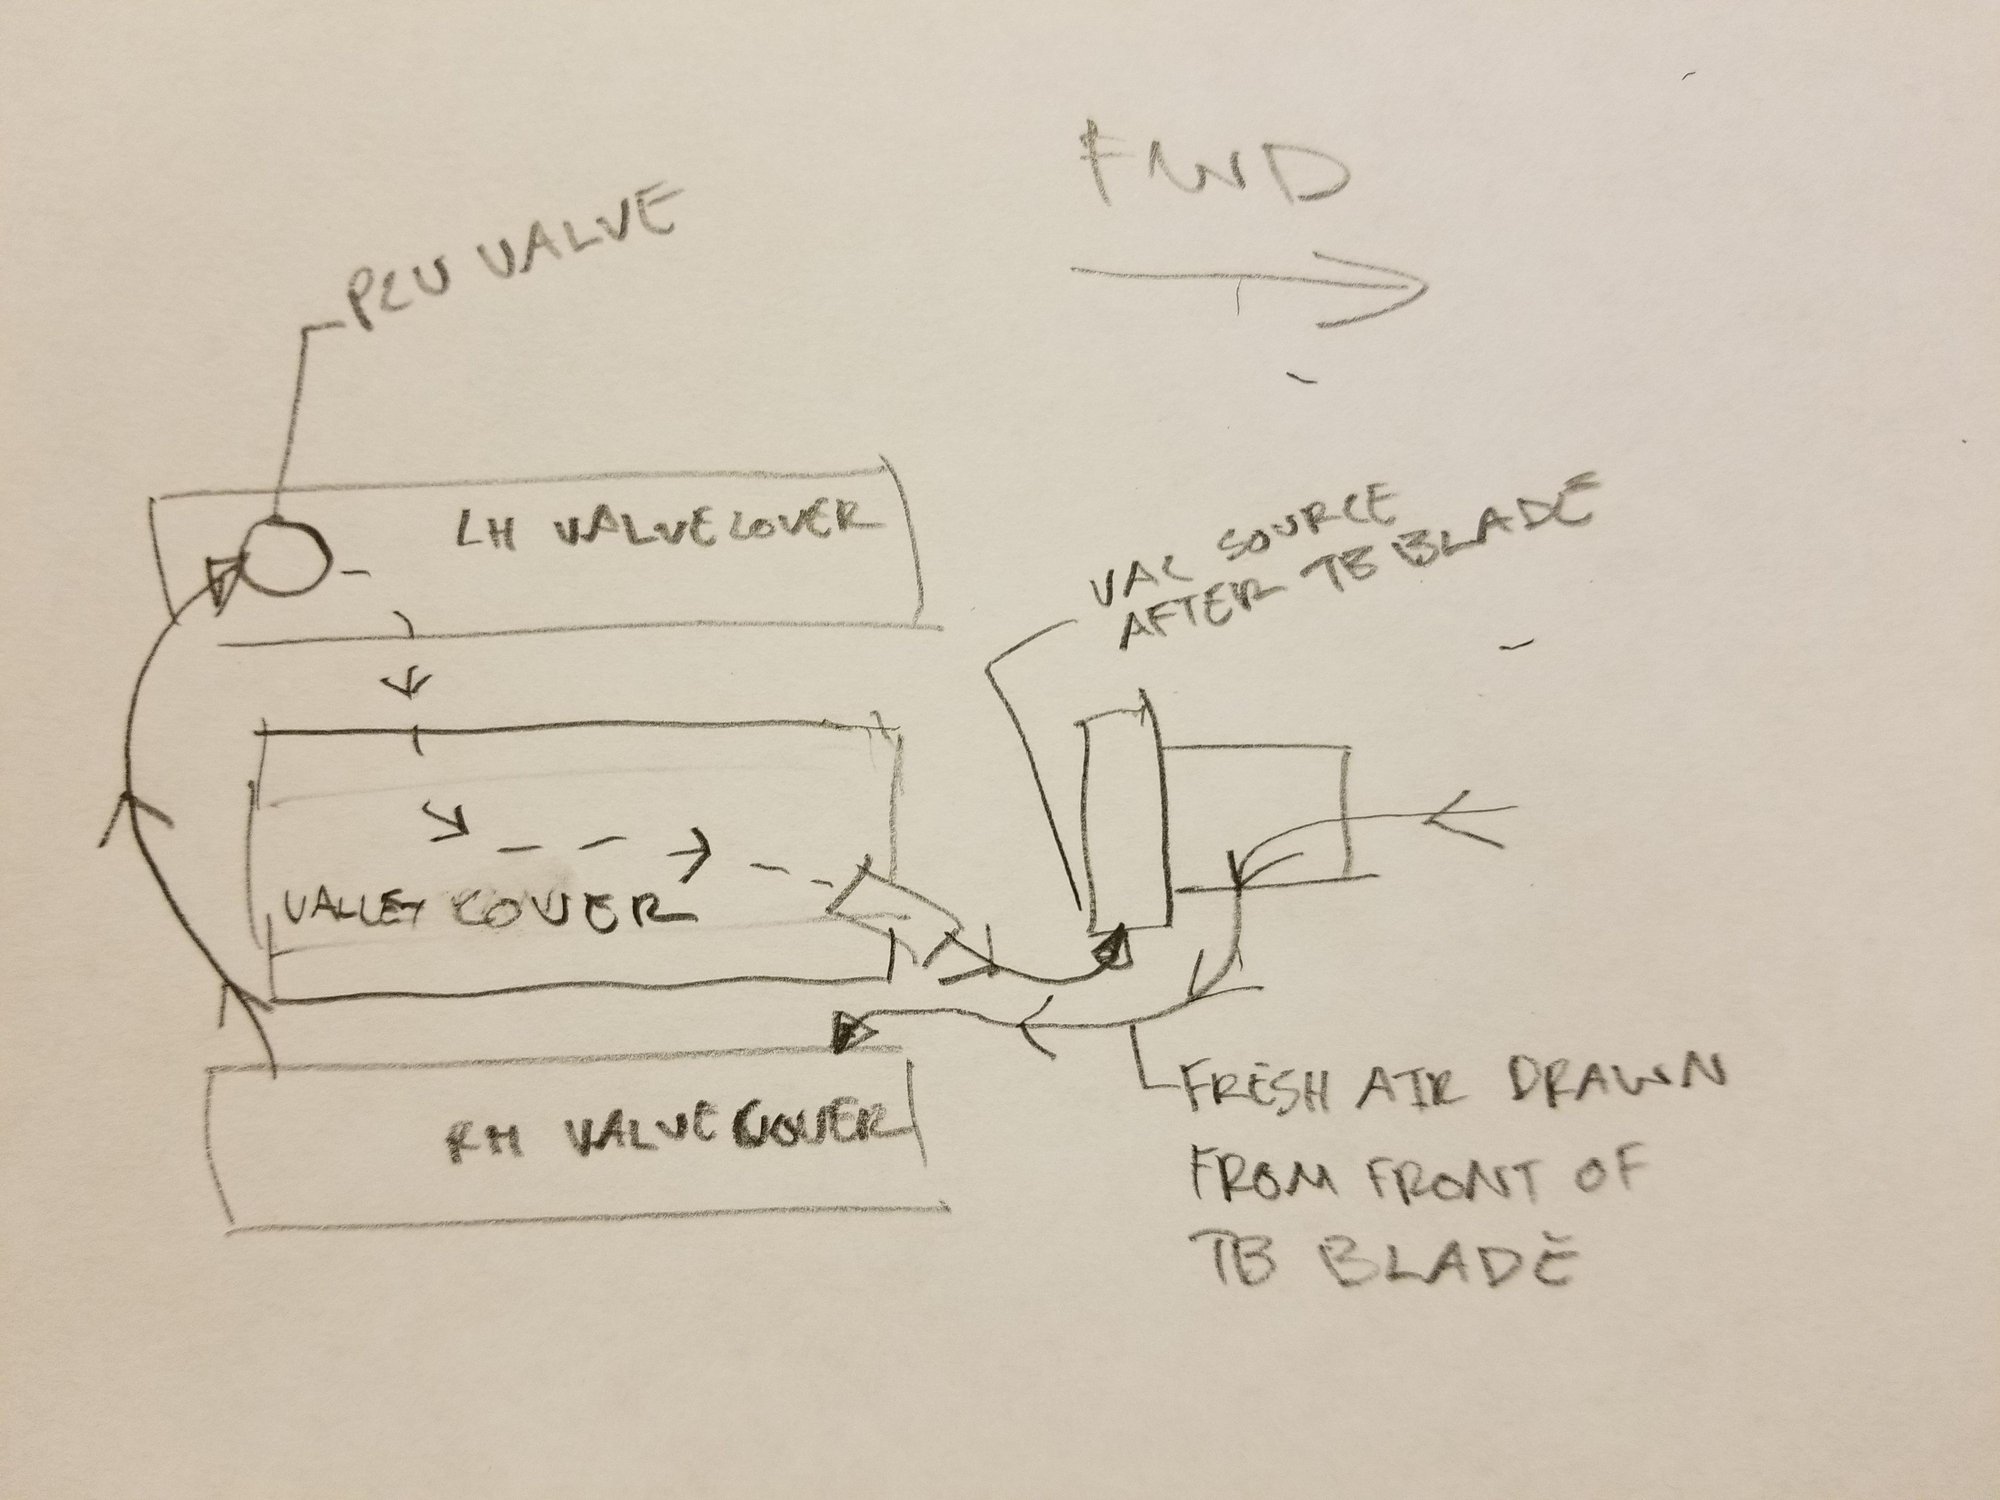 FWD
PCV VALVE
LH VALVE COVER
VAC SOURCE
AFTER TB BLADE
VALLEY COVER
FRESH AIR DRAWN
FROM FRONT OF
TB BLADE
RH VALVE COVER